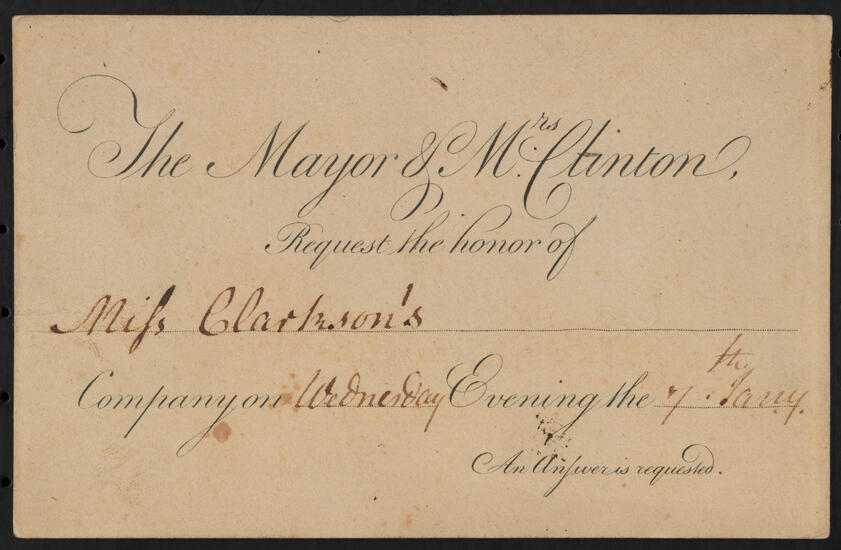 The Mayor & Mrs. Clinton,
Request the honor of
Miſs Clarkson's
Company on Wednesday Evening the 7th Jany.
An Anſwer is requested.